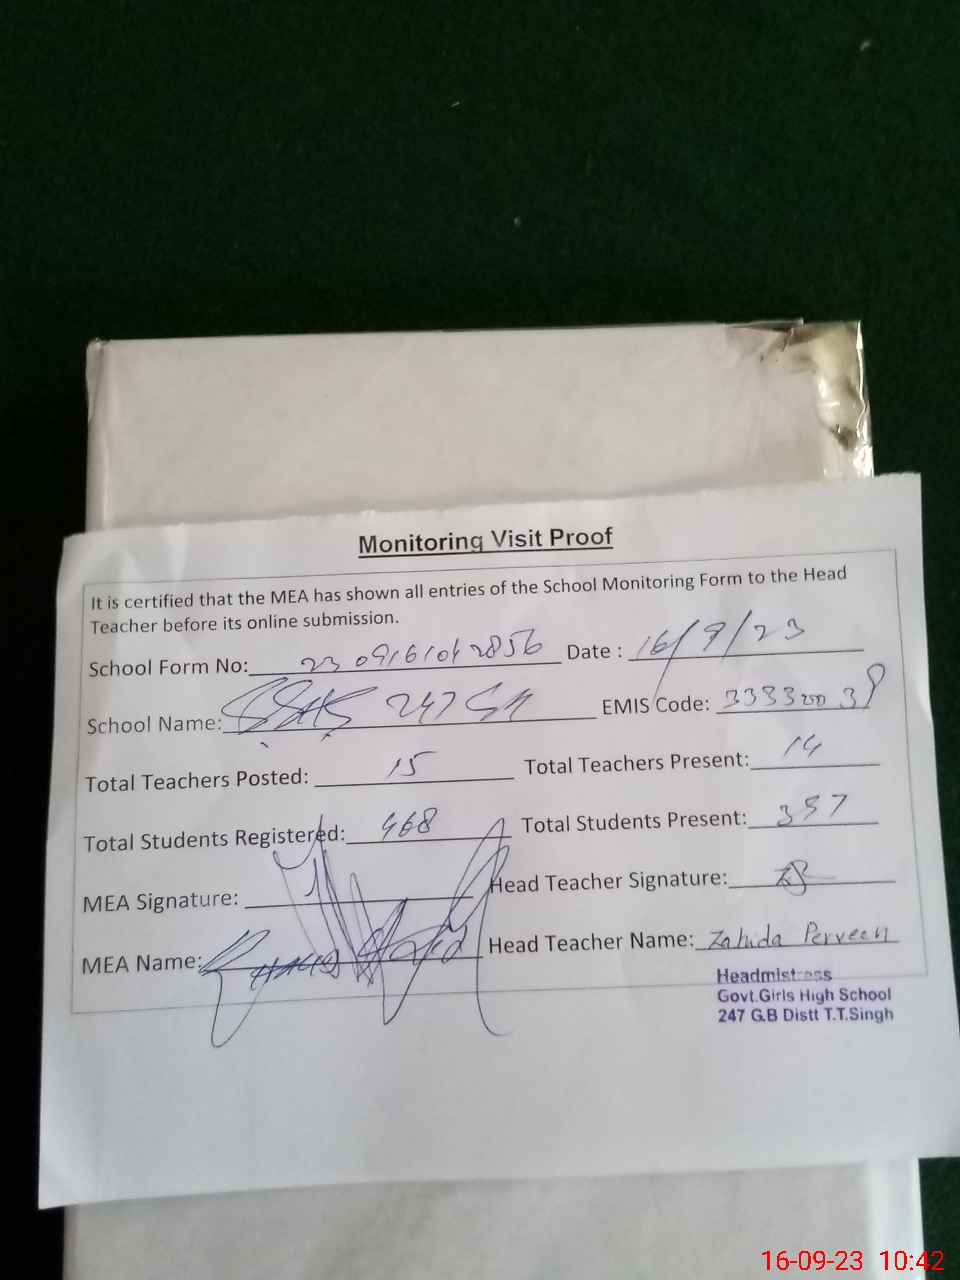 Monitoring Visit Proof
It is certified that the MEA has shown all entries of the School Monitoring Form to the Head
Teacher before its online submission.
School Form No: Date : 16/9/23
School Name: 247 EMIS Code: 33320038
Total Teachers Posted: 15 Total Teachers Present: 14
Total Students Registered: 468 Total Students Present: 357
MEA Signature: Head Teacher Signature:
MEA Name: Head Teacher Name: Zahida Perveen
Headmistress
Govt.Girls High School
247 G.B Distt T.T.Singh
16-09-23 10:42